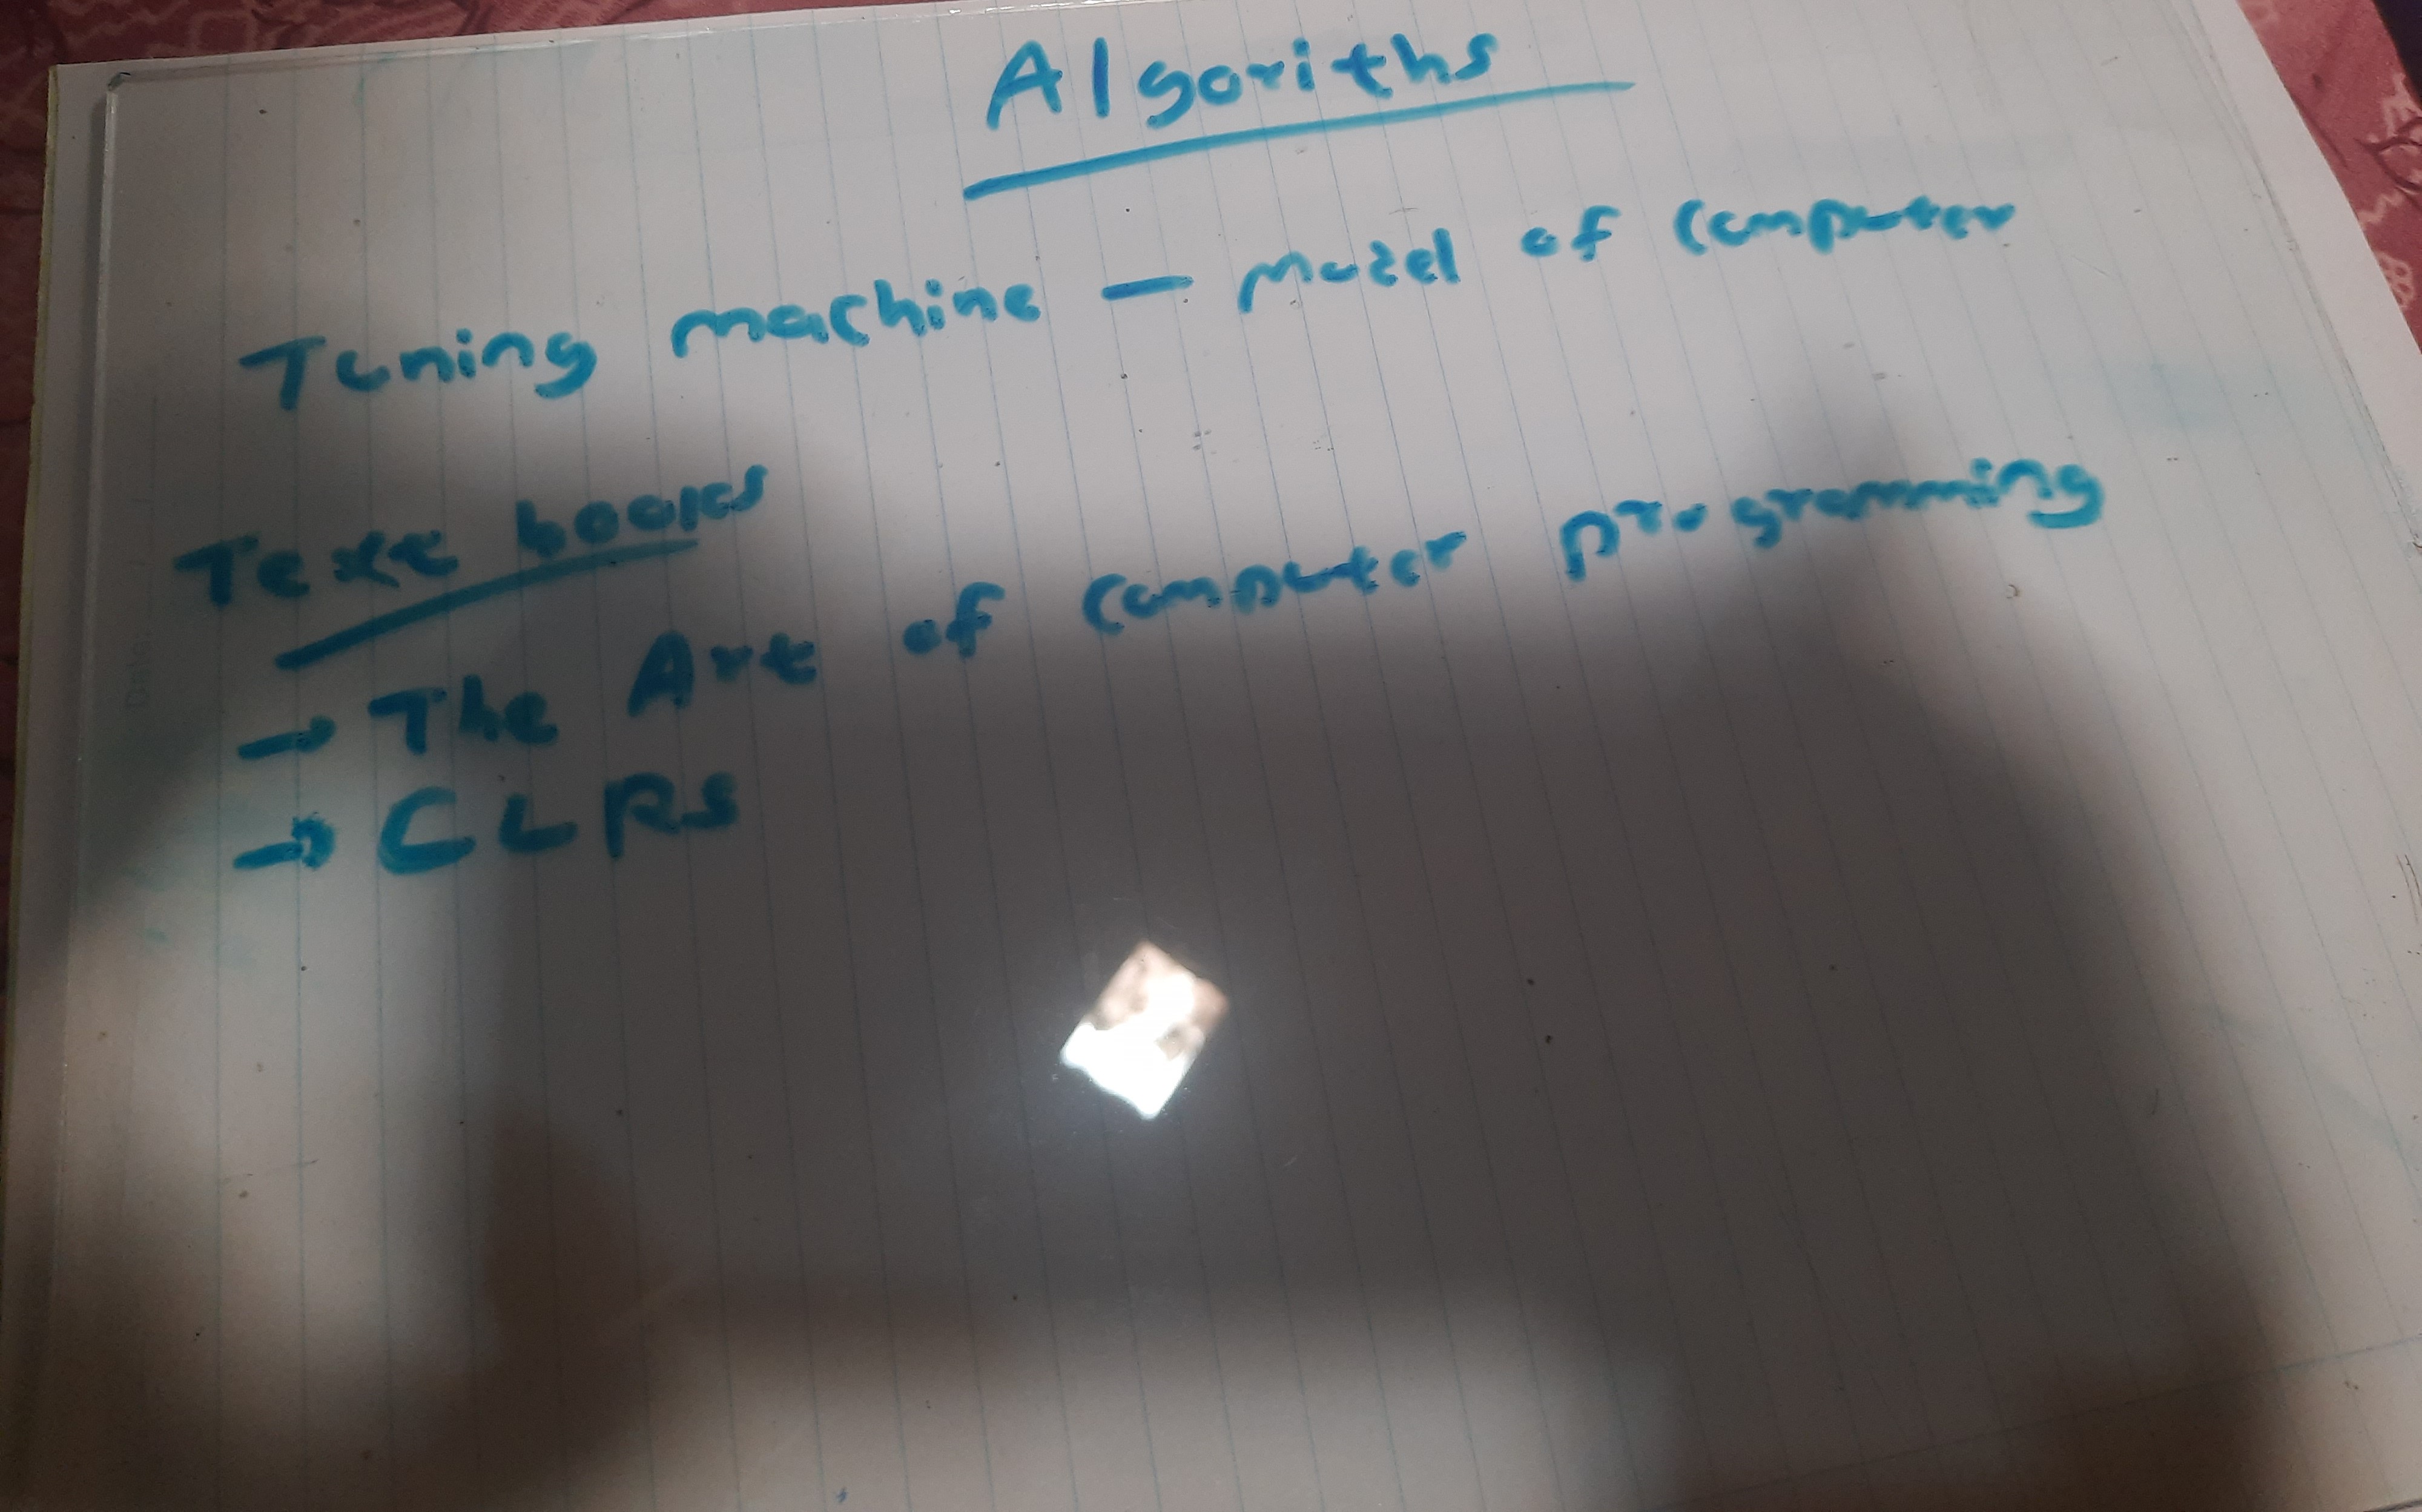 Algoriths
Tuning machine — Model of Computer
Text books
→ The Art of Computer programming
→ CLRS